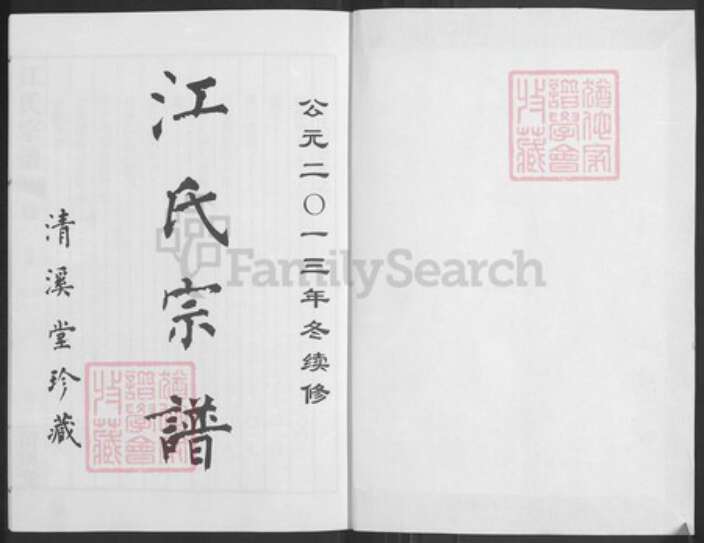 公元二〇一三年冬续修
江氏宗譜
清溪堂珍藏
猶他家
譜學會
收藏
猶他家
譜學會
收藏
FamilySearch